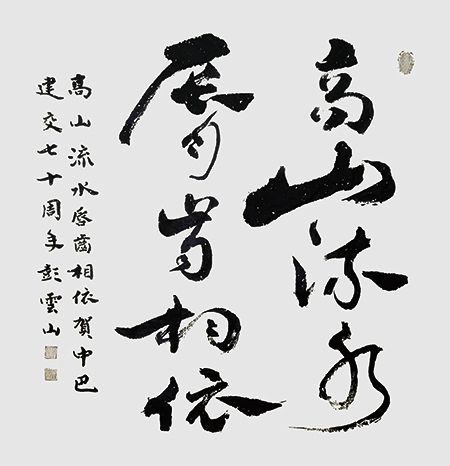 高山流水
唇齿相依
高山流水唇齒相依贺中巴
建交七十周年彭雲山